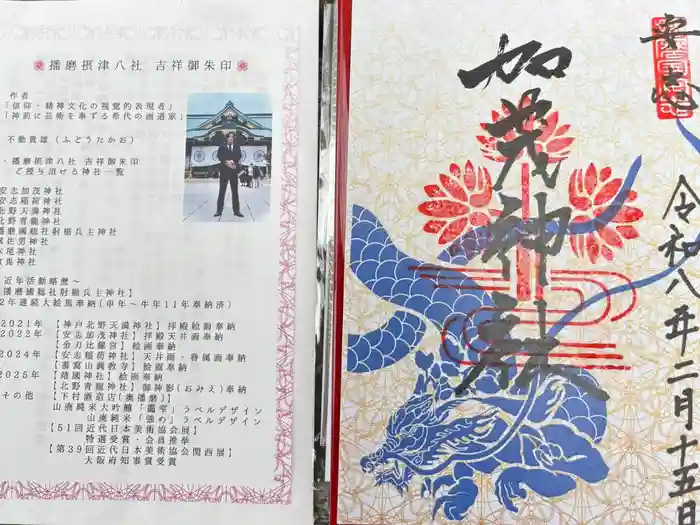 播磨摂津八社 吉祥御朱印
作者
「信仰・精神文化の視覚的表現者」
「神前に芸術を奉ずる希代の画道家」
不動貴雄（ふどうたかお）
・播磨摂津八社 吉祥御朱印
ご授与頂ける神社一覧
安志加茂神社
安志稲荷神社
北野天満神社
北野青龍神社
播磨國総社射楯兵主神社
佐男神社
尾神社
島神社
近年活動略歴～
播磨國総社射楯兵主神社】
2年連続大絵馬奉納（申年～午年11年奉納済）
2021年 【神戸北野天満神社】拝殿絵画奉納
2022年 【安志加茂神社】拝殿天井画奉納
【金刀比羅宮】絵画奉納
2024年 【安志稲荷神社】天井画・眷属画奉納
【書寫山圓教寺】絵画奉納
2025年 【靖國神社】絵画奉納
【北野青龍神社】御神影（おみえ）奉納
その他 【下村酒造店（奥播磨）】
山廃純米大吟醸「 」ラベルデザイン
山廃純米「強め」ラベルデザイン
【51回近代日本美術協会展】
特選受賞・会員推挙
【第39回近代日本美術協会関西展】
大阪府知事賞受賞
安志
加茂神社
令和八年二月十五日